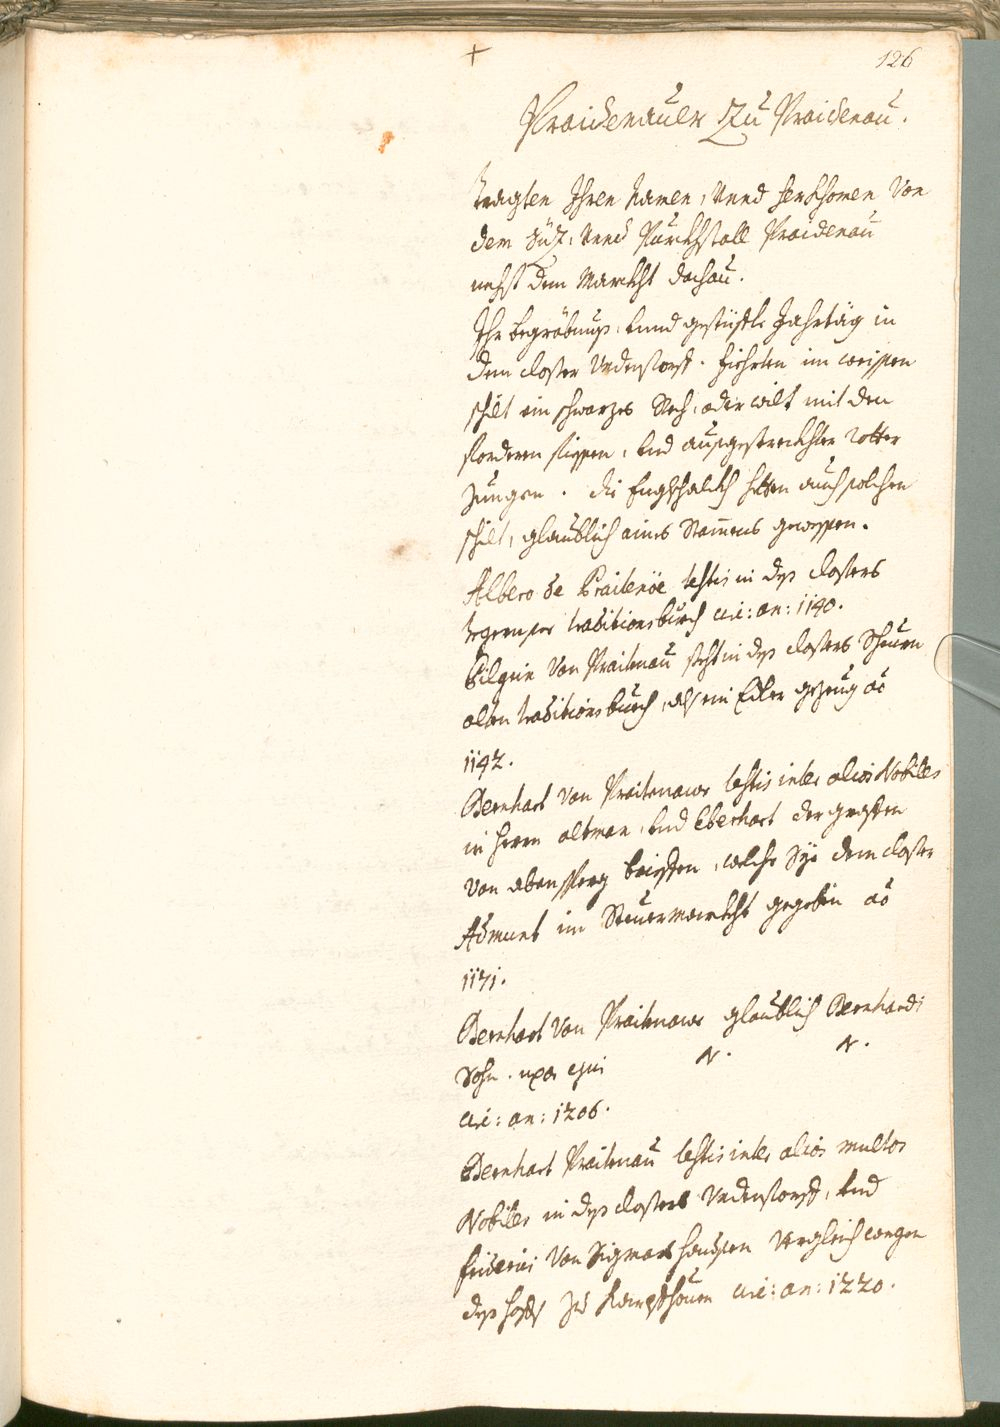 +
126
Praidenauer Zu Praidenau.
tragten Ihren Namen, Vnnd herkhomen Von
dem Siz, Vnnd Purckhstall Praidenau
nechst dem Marckht dachau.
Ihr begröbnus, Vnnd gestüffte Jahrtäg in
dem closter Vnderstorff. fiehrten im weissen
schilt ein schwarzes Rech, oder wilt mit den
fordern fiessen, Vnd ausgestreckhter rotter
Zungen. die Englschalckh hetten auch solchen
schilt, glaublich aines Stammens gewessen.
Albero de Praitenöe testis in dess closters
tegernsee traditionsbuech circ: an: 1140.
Pilgrin Von Praitenau steht in dess closters Scheurn
alten traditionsbuech, als ein Edler gezeug ao
1142.
Bernhart Von Praitenawe testis inter alios Nobiles
in herrn altman, Vnd Eberhart der graffen
Von abensperg brieffen, welche Sye dem closter
Admunt im Steuermarckht gegeben ao
1171.
Bernhart Von Praitnawe glaublich Bernhardi
Sohn. uxor ejus N. N.
circ: an: 1206.
Bernhart Praitnau testis inter alios multos
Nobiles in dess closters Vnderstorff, Vnd
friderici Von Sigmarshaussen Vergleich wegen
dess hoffs zu Kampfhouen circ: an: 1220.